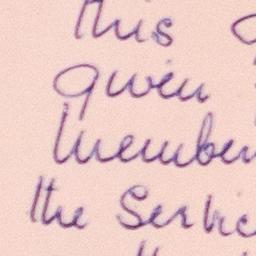 this
given
member
the Service